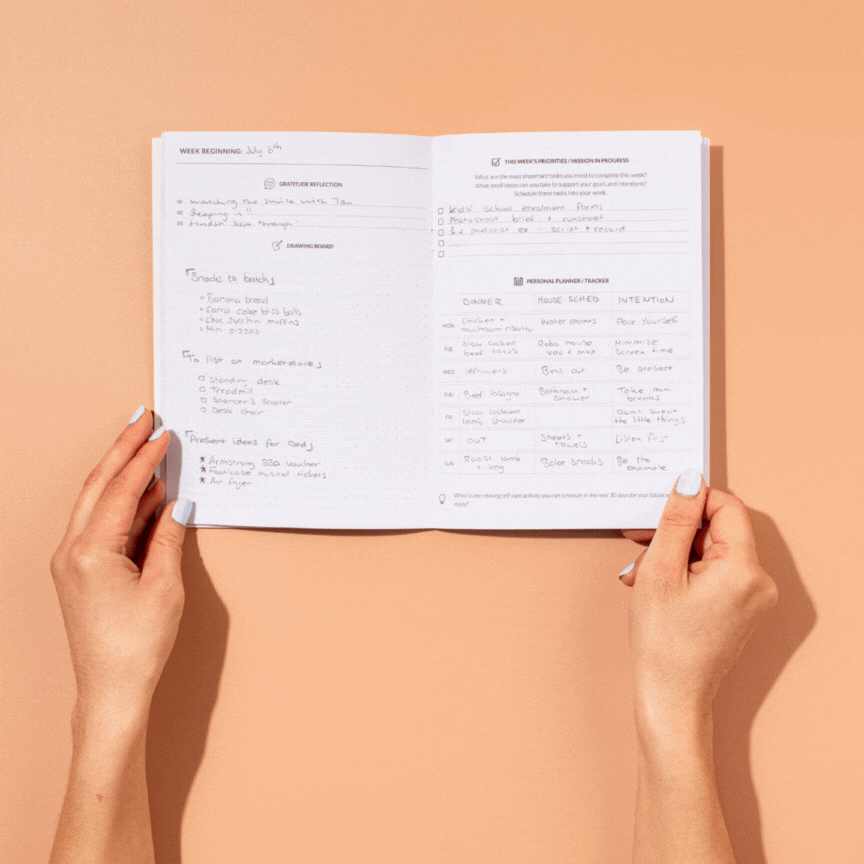 WEEK BEGINNING: July 6th
GRATITUDE REFLECTION
watching the smile with
Sleeping in !!
through!
DRAWING BOARD
「Snacks to batch」
Banana bread
Carrot cake bliss balls
Choc zucchini muffins
Mini pizzas
「To list on marketplace」
Standing desk
Treadmill
Spencer's Scooter
Desk chair
「Present ideas for Dad」
Armstrong BBQ voucher
Footloose musical tickets
Air fryer
THIS WEEK'S PRIORITIES / MISSION IN PROGRESS
What are the most important tasks you need to complete this week?
What small steps can you take to support your goals and intentions?
Schedule these tasks into your week.
Kids' School enrolment forms
Photoshoot brief + runsheet
podcast ep - script + record
PERSONAL PLANNER / TRACKER
DINNER HOUSE SCHED INTENTION
MON Chicken + mushroom risotto Water plants Pace Yourself
TUE Slow cooked beef tacos Robo house vac + mop Minimise Screen time
WED leftovers Bins out Be present
THU Beef lasagna Bathroom + Shower Take more breaks
FRI Slow cooked lamb shoulder Don't sweat the little things
SAT OUT Sheets + towels Listen first
SUN Roast lamb + veg Bake snacks Be the example
What is one relaxing self-care activity you can schedule in the next 30 days for your future
enjoy?